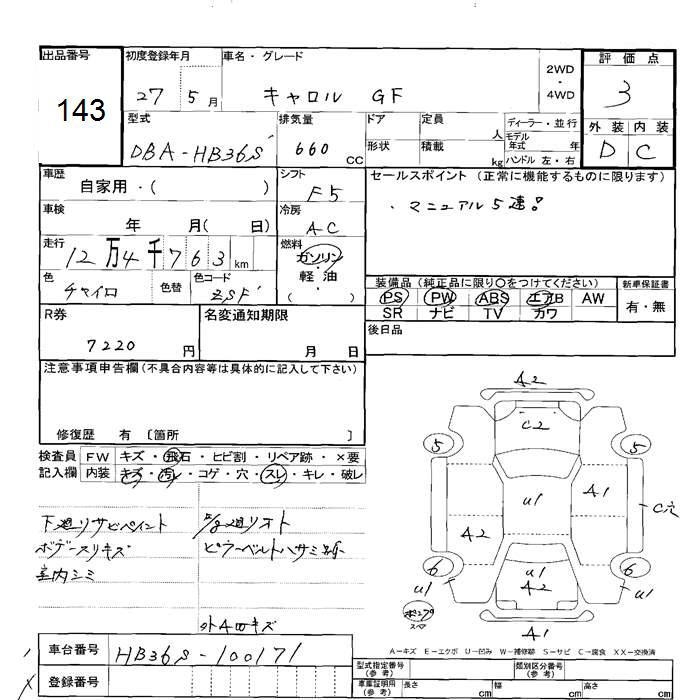 出品番号
143
初度登録年月
27 5月
車名・グレード
キャロル GF
2WD
・
4WD
評価点
3
外装 内装
D C
型式
DBA-HB36S
排気量
660 CC
ドア
形状
定員 人
積載 kg
ディーラー・並行
モデル
年式 年
ハンドル 左・右
車歴
自家用・( )
シフト
F5
セールスポイント (正常に機能するものに限ります)
・マニュアル5速!
車検
年 月( 日)
冷房
AC
走行
12万4千763km
燃料
ガソリン
・
軽・油
( )
色
チャイロ
色替
色コード
ZSF
装備品(純正品に限り〇をつけてください)
PS PW ABS エアB AW
SR ナビ TV カワ
新車保証書
有・無
後日品
R券
7220円
名変通知期限
月 日
注意事項申告欄(不具合内容等は具体的に記入して下さい)
修復歴 有 〔箇所 〕
検査員
記入欄
FW キズ・飛石・ヒビ割・リペア跡・×要
内装 キズ・汚レ・コゲ・穴・スレ・キレ・破レ
下廻リサビペイント
ボデースリキズ
室内シミ
ピラーベルトハサミ
外Aロキズ
A2
C2
5
5
A1
U1
C穴
A2
6
6
U1
U1
U1
A2
A1
スペア
A-キズ E-エクボ U-凹み W-補修跡 S-サビ C-腐食 XX-交換済
車台番号
HB36S-100171
登録番号
型式指定番号
(参考)
類別区分番号
(参考)
車庫証明用
(参考)
長さ cm
幅 cm
高さ cm